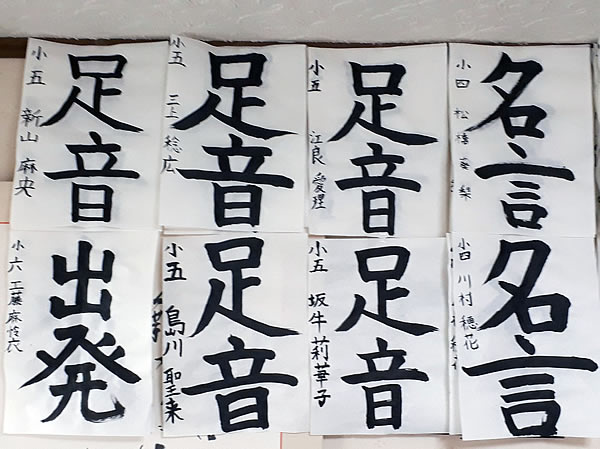 名言
小四 松
梨
足音
小五 江良 愛理
足音
小五 三上 稔広
足音
小五 新山 麻央
名言
小四 川村 穂花
足音
小五 坂牛 莉華子
足音
小五 島川 聖来
出発
小六 工藤 麻悠衣